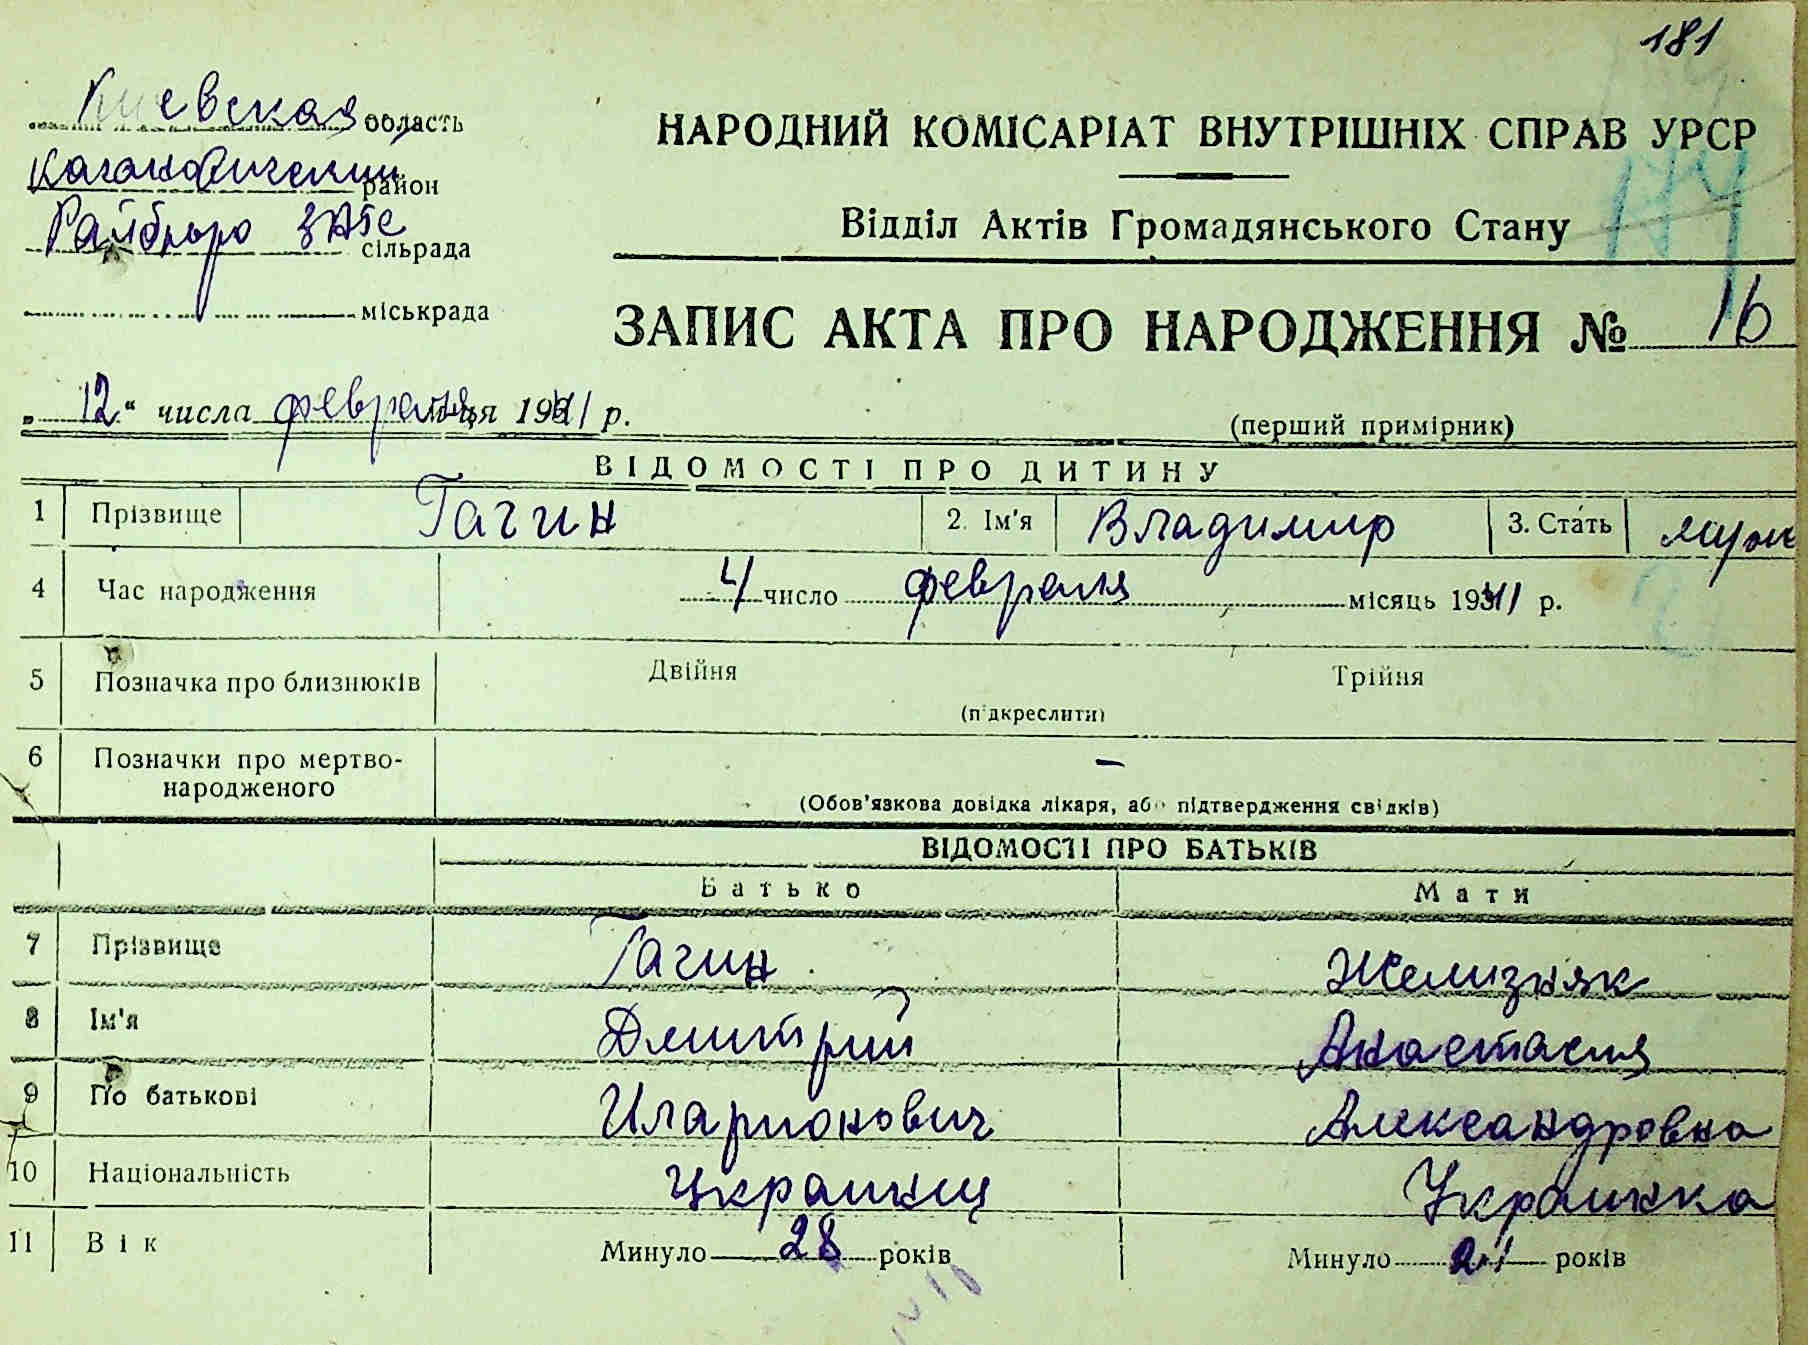 181
Киевская область
Кагановичский район
Райбюро ЗАГС сільрада
міськрада
НАРОДНИЙ КОМІСАРІАТ ВНУТРІШНІХ СПРАВ УРСР
174
Відділ Актів Громадянського Стану
ЗАПИС АКТА ПРО НАРОДЖЕННЯ № 16
„12“ числа февраля 1941 р.
(перший примірник)
ВІДОМОСТІ ПРО ДИТИНУ
1 Прізвище Гагин 2. Ім'я Владимир 3. Стать муж
4 Час народження 4 число февраля місяць 1941 р.
5 Позначка про близнюків Двійня Трійня
(підкреслити)
6 Позначки про мертво-
народженого –
(Обов'язкова довідка лікаря, або підтвердження свідків)
ВІДОМОСТІ ПРО БАТЬКІВ
Батько Мати
7 Прізвище Гагин Желизняк
8 Ім'я Дмитрий Анастасия
9 По батькові Иларионович Александровна
10 Національність Украинец Украинка
11 Вік Минуло 28 років Минуло років